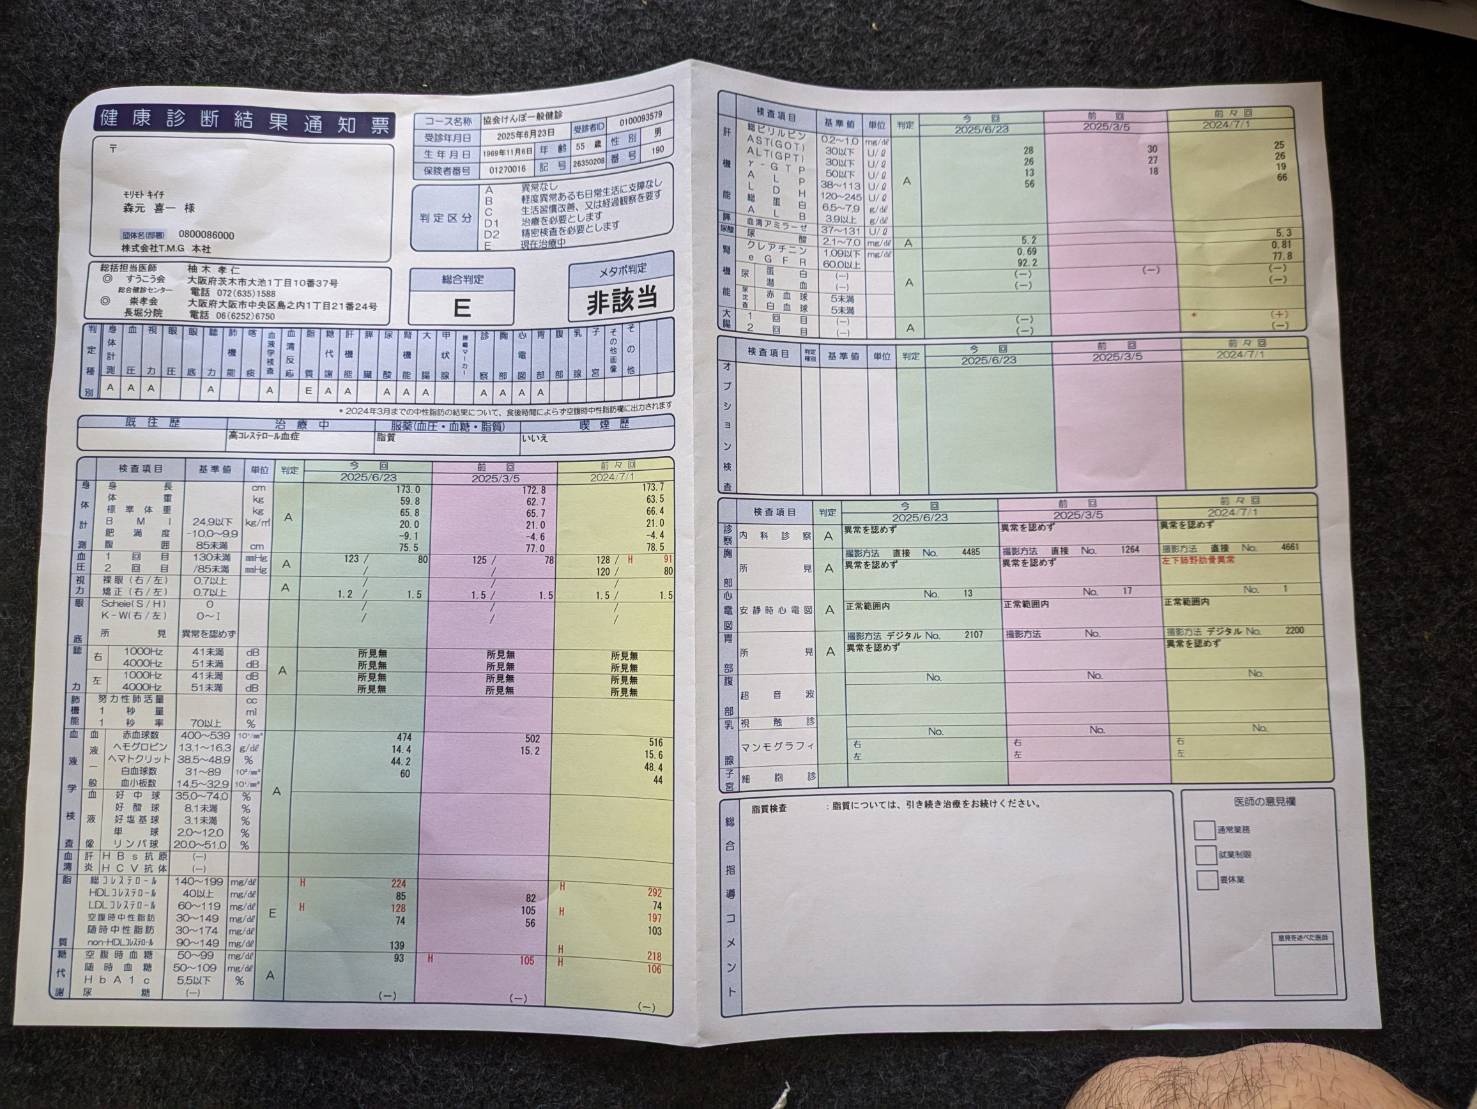 健康診断結果通知票
〒
モリモト キイチ
森元 喜一 様
団体名(部署) 0800086000
株式会社T.M.G 本社
コース名称 協会けんぽ一般健診
受診年月日 2025年6月23日 受診者ID 0100093579
生年月日 1969年11月6日 年齢 55 歳 性別 男
保険者番号 01270016 記号 26350208 番号 190
判定区分
A 異常なし
B 軽度異常あるも日常生活に支障なし
C 生活習慣改善、又は経過観察を要す
D1 治療を必要とします
D2 精密検査を必要とします
E 現在治療中
総括担当医師 柚木 孝仁
◎ すうこう会 大阪府茨木市大池1丁目10番37号
総合健診センター 電話 072(635)1588
◎ 崇孝会 大阪府大阪市中央区島之内1丁目21番24号
長堀分院 電話 06(6252)6750
総合判定 E
メタボ判定 非該当
判定種別 身体計測 血圧 視力 眼圧 眼底 聴力 肺機能 喀痰 血液学検査 血清反応 脂質 糖代謝 肝機能 膵臓 尿酸 腎機能 大腸 甲状腺 腫瘍マーカー 診察 胸部 心電図 胃部 腹部 乳腺 子宮 その他画像 その他
A A A A A E A A A A A A A A A
* 2024年3月までの中性脂肪の結果について、食後時間によらず空腹時中性脂肪欄に出力されます
既往歴 治療中 服薬(血圧・血糖・脂質) 喫煙歴
高コレステロール血症 脂質 いいえ
検査項目 基準値 単位 判定 今回 2025/6/23 前回 2025/3/5 前々回 2024/7/1
身体計測 A
身長 cm 173.0 172.8 173.7
体重 kg 59.8 62.7 63.5
標準体重 kg 65.8 65.7 66.4
BMI 24.9以下 kg/㎡ 20.0 21.0 21.0
肥満度 -10.0~9.9 -9.1 -4.6 -4.4
腹囲 85未満 cm 75.5 77.0 78.5
血圧 1回目 130未満 mmHg A 123 / 80 125 / 78 128 / H 91
2回目 /85未満 mmHg / / 120 / 80
視力 裸眼(右/左) 0.7以上 A / / /
矯正(右/左) 0.7以上 1.2 / 1.5 1.5 / 1.5 1.5 / 1.5
眼底 Scheie(S/H) 0 / / /
K-W(右/左) 0~I / / /
所見 異常を認めず
聴力 右 1000Hz 41未満 dB A 所見無 所見無 所見無
4000Hz 51未満 dB 所見無 所見無 所見無
左 1000Hz 41未満 dB 所見無 所見無 所見無
4000Hz 51未満 dB 所見無 所見無 所見無
肺機能 努力性肺活量 cc
1秒量 ml
1秒率 70以上 %
血液学検査 A
血液一般 赤血球数 400~539 10⁴/mm³ 474 502 516
ヘモグロビン 13.1~16.3 g/dℓ 14.4 15.2 15.6
ヘマトクリット 38.5~48.9 % 44.2 48.4
白血球数 31~89 10²/mm³ 60 44
血小板数 14.5~32.9 10⁴/mm³
血液像 好中球 35.0~74.0 %
好酸球 8.1未満 %
好塩基球 3.1未満 %
単球 2.0~12.0 %
リンパ球 20.0~51.0 %
血清 肝炎 HBs抗原 (-)
HCV抗体 (-)
脂質 E
総コレステロール 140~199 mg/dℓ H 224 H 292
HDLコレステロール 40以上 mg/dℓ 85 82 74
LDLコレステロール 60~119 mg/dℓ H 128 105 H 197
空腹時中性脂肪 30~149 mg/dℓ 74 56 103
随時中性脂肪 30~174 mg/dℓ
non-HDLコレステロール 90~149 mg/dℓ 139 H 218
糖代謝 A
空腹時血糖 50~99 mg/dℓ 93 H 105 H 106
随時血糖 50~109 mg/dℓ
HbA1c 5.5以下 %
尿糖 (-) (-) (-) (-)
検査項目 基準値 単位 判定 今回 2025/6/23 前回 2025/3/5 前々回 2024/7/1
肝機能 A
総ビリルビン 0.2~1.0 mg/dℓ
AST(GOT) 30以下 U/ℓ 28 30 25
ALT(GPT) 30以下 U/ℓ 26 27 26
γ-GTP 50以下 U/ℓ 13 18 19
ALP 38~113 U/ℓ 56 66
LDH 120~245 U/ℓ
総蛋白 6.5~7.9 g/dℓ
ALB 3.9以上 g/dℓ
膵 血清アミラーゼ 37~131 U/ℓ
尿酸 尿酸 2.1~7.0 mg/dℓ A 5.2 5.3
腎機能 クレアチニン 1.09以下 mg/dℓ A 0.69 0.81
eGFR 60.0以上 92.2 77.8
尿蛋白 (-) (-) (-) (-)
尿潜血 (-) (-) (-)
尿沈査 赤血球 5未満
白血球 5未満
大腸 1回目 (-) A (-) * (+)
2回目 (-) (-) (-)
検査項目 判定種別 基準値 単位 判定 今回 2025/6/23 前回 2025/3/5 前々回 2024/7/1
オプション検査
検査項目 判定 今回 2025/6/23 前回 2025/3/5 前々回 2024/7/1
診察 内科診察 A 異常を認めず 異常を認めず 異常を認めず
胸部 撮影方法 直接 No. 4485 撮影方法 直接 No. 1264 撮影方法 直接 No. 4661
所見 A 異常を認めず 異常を認めず 左下肺野肋骨異常
心電図 No. 13 No. 17 No. 1
安静時心電図 A 正常範囲内 正常範囲内 正常範囲内
胃部 撮影方法 デジタル No. 2107 撮影方法 No. 撮影方法 デジタル No. 2200
所見 A 異常を認めず 異常を認めず
腹部 No. No. No.
超音波
乳腺 視触診
No. No. No.
マンモグラフィ 右 右 右
左 左 左
子宮 細胞診
総合指導コメント
脂質検査 :脂質については、引き続き治療をお続けください。
医師の意見欄
通常業務
就業制限
要休業
意見を述べた医師